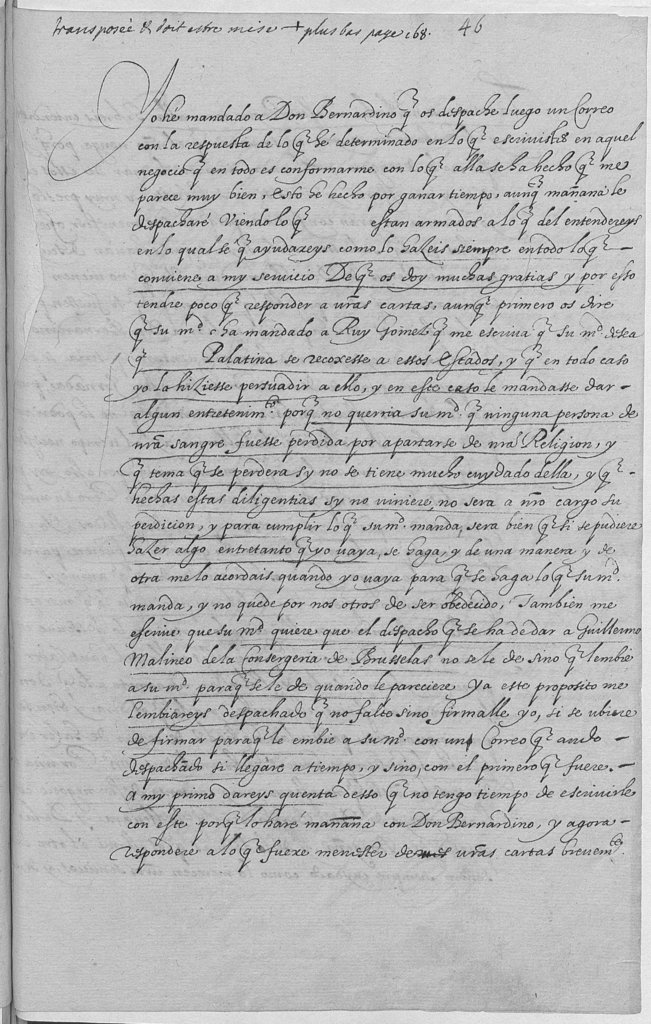 transposée & doit estre mise + plus bas page 168. 46
Yo hé mandado a Don Bernardino q̃ os despache luego un Correo
con la respuesta de lo q̃ hé determinado en lo q̃ escrivistes en aquel
negocio q̃ en todo es conformarme con lo q̃ alla se ha hecho q̃ me
parece muy bien, esto hé hecho por ganar tiempo, aunq̃ mañana le
despacharé Viendo lo q̃ estan armados a lo q̃ del entendereys
en lo qual sé q̃ ayudareys como lo hazeis siempre en todo lo q̃ –
conviene a my servicio De q̃ os doy muchas gratias y por esso
tendre poco q̃ responder a vrãs cartas, aunq̃ primero os dire
q̃ su md. ha mandado a Ruy Gomez q̃ me escriva q̃ su md. desea
q̃ Palatina se recoxesse a essos Estados, y q̃ en todo caso
yo la hiziesse persuadir a ello, y en esse caso le mandasse dar –
algun entretenimto. porq̃ no querria su md. q̃ ninguna persona de
nrã sangre fuesse perdida por apartarse de nrã Religion, y
q̃ tema q̃ se perdera sy no se tiene mucho cuydado della, y q̃ –
hechas estas diligentias sy no viniere, no sera a nrõ cargo su
perdicion, y para cumplir lo q̃ su md. manda, sera bien q̃ si se pudiere
hazer algo, entretanto q̃ yo vaya, se haga, y de una manera y de
otra me lo acordais quando yo vaya para q̃ se haga lo q̃ su md.
manda, y no quede por nos otros de ser obedecido, Tambien me
escrive que su md. quiere que el despacho q̃ se ha de dar a Guillermo
Malineo de la Consergeria de Brusselas no se le de sino q̃ lembie
a su md. para q̃ se le de quando le pareciere Ya este proposito me
lembiareys despachado q̃ no falte sino firmalle yo, si se ubiere
de firmar para q̃ le embie a su md. con un Correo q̃ ando –
despachãdo si llegare a tiempo, y sino, con el primero q̃ fuere. –
A my primo dareys quenta desso q̃ no tengo tiempo de escrivirle
con este porq̃ lo haré mañana con Don Bernardino, y agora –
respondere a lo q̃ fuere menester de vrãs cartas brevemte.